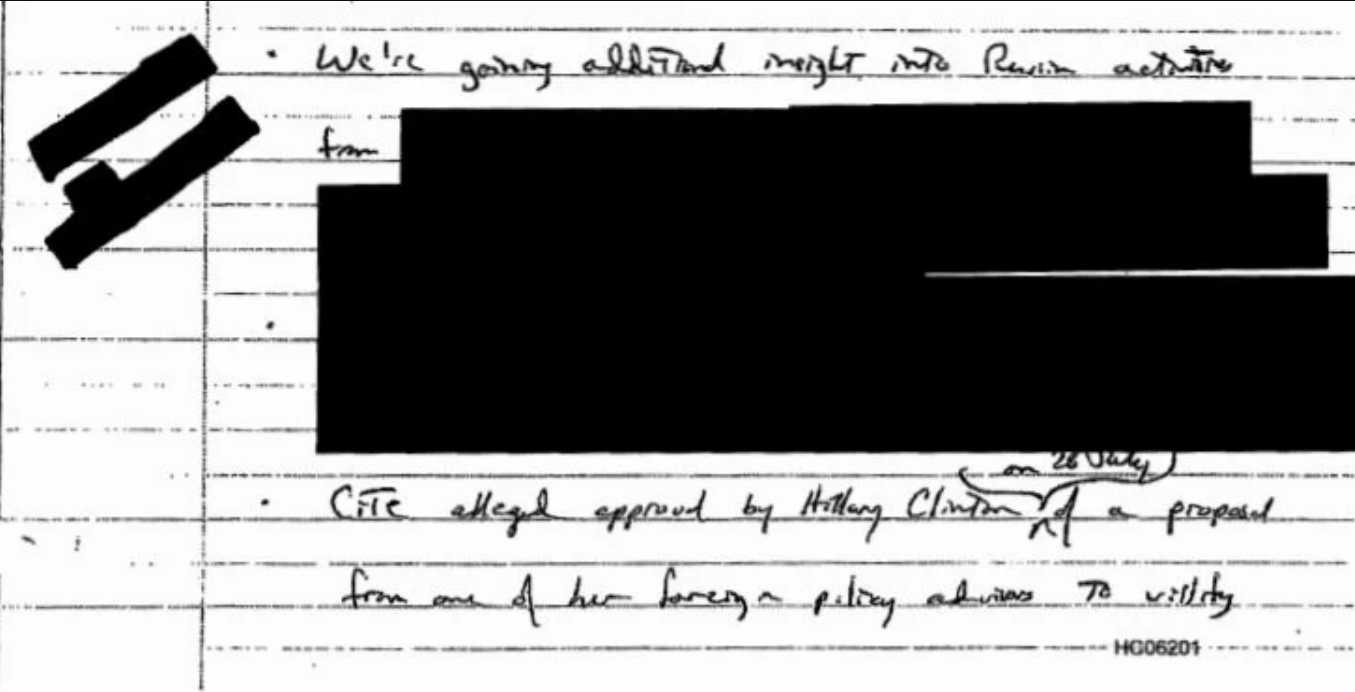 • We're gaining additional insight into Russian activities
from
•
on 26 July
• CITE alleged approval by Hillary Clinton of a proposal
from one of her foreign policy advisors to villify
HC06201